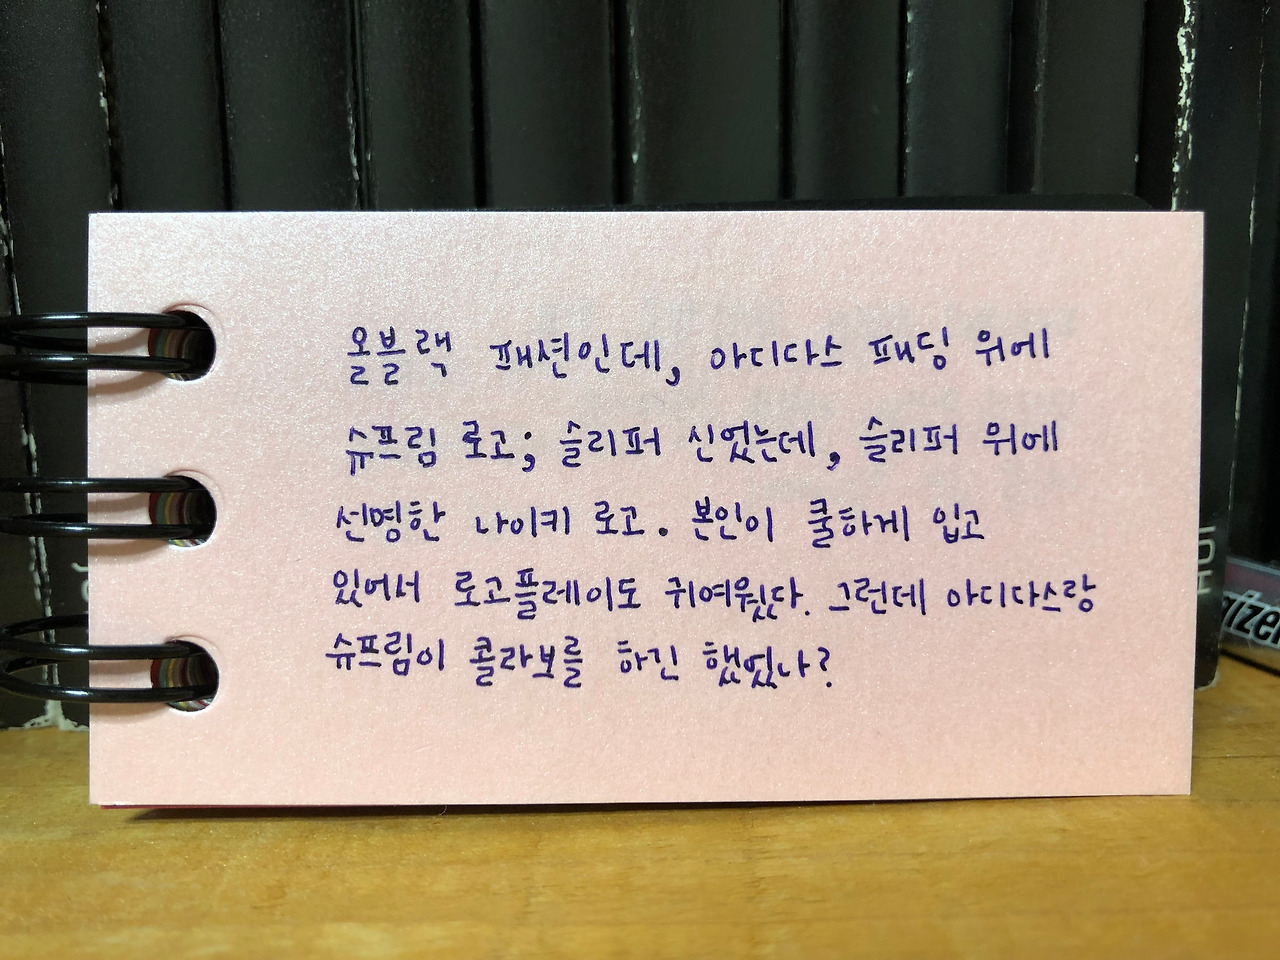 올블랙 패션인데, 아디다스 패딩 위에
슈프림 로고; 슬리퍼 신었는데, 슬리퍼 위에
선명한 나이키 로고. 본인이 쿨하게 입고
있어서 로고플레이도 귀여웠다. 그런데 아디다스랑
슈프림이 콜라보를 하긴 했었나?